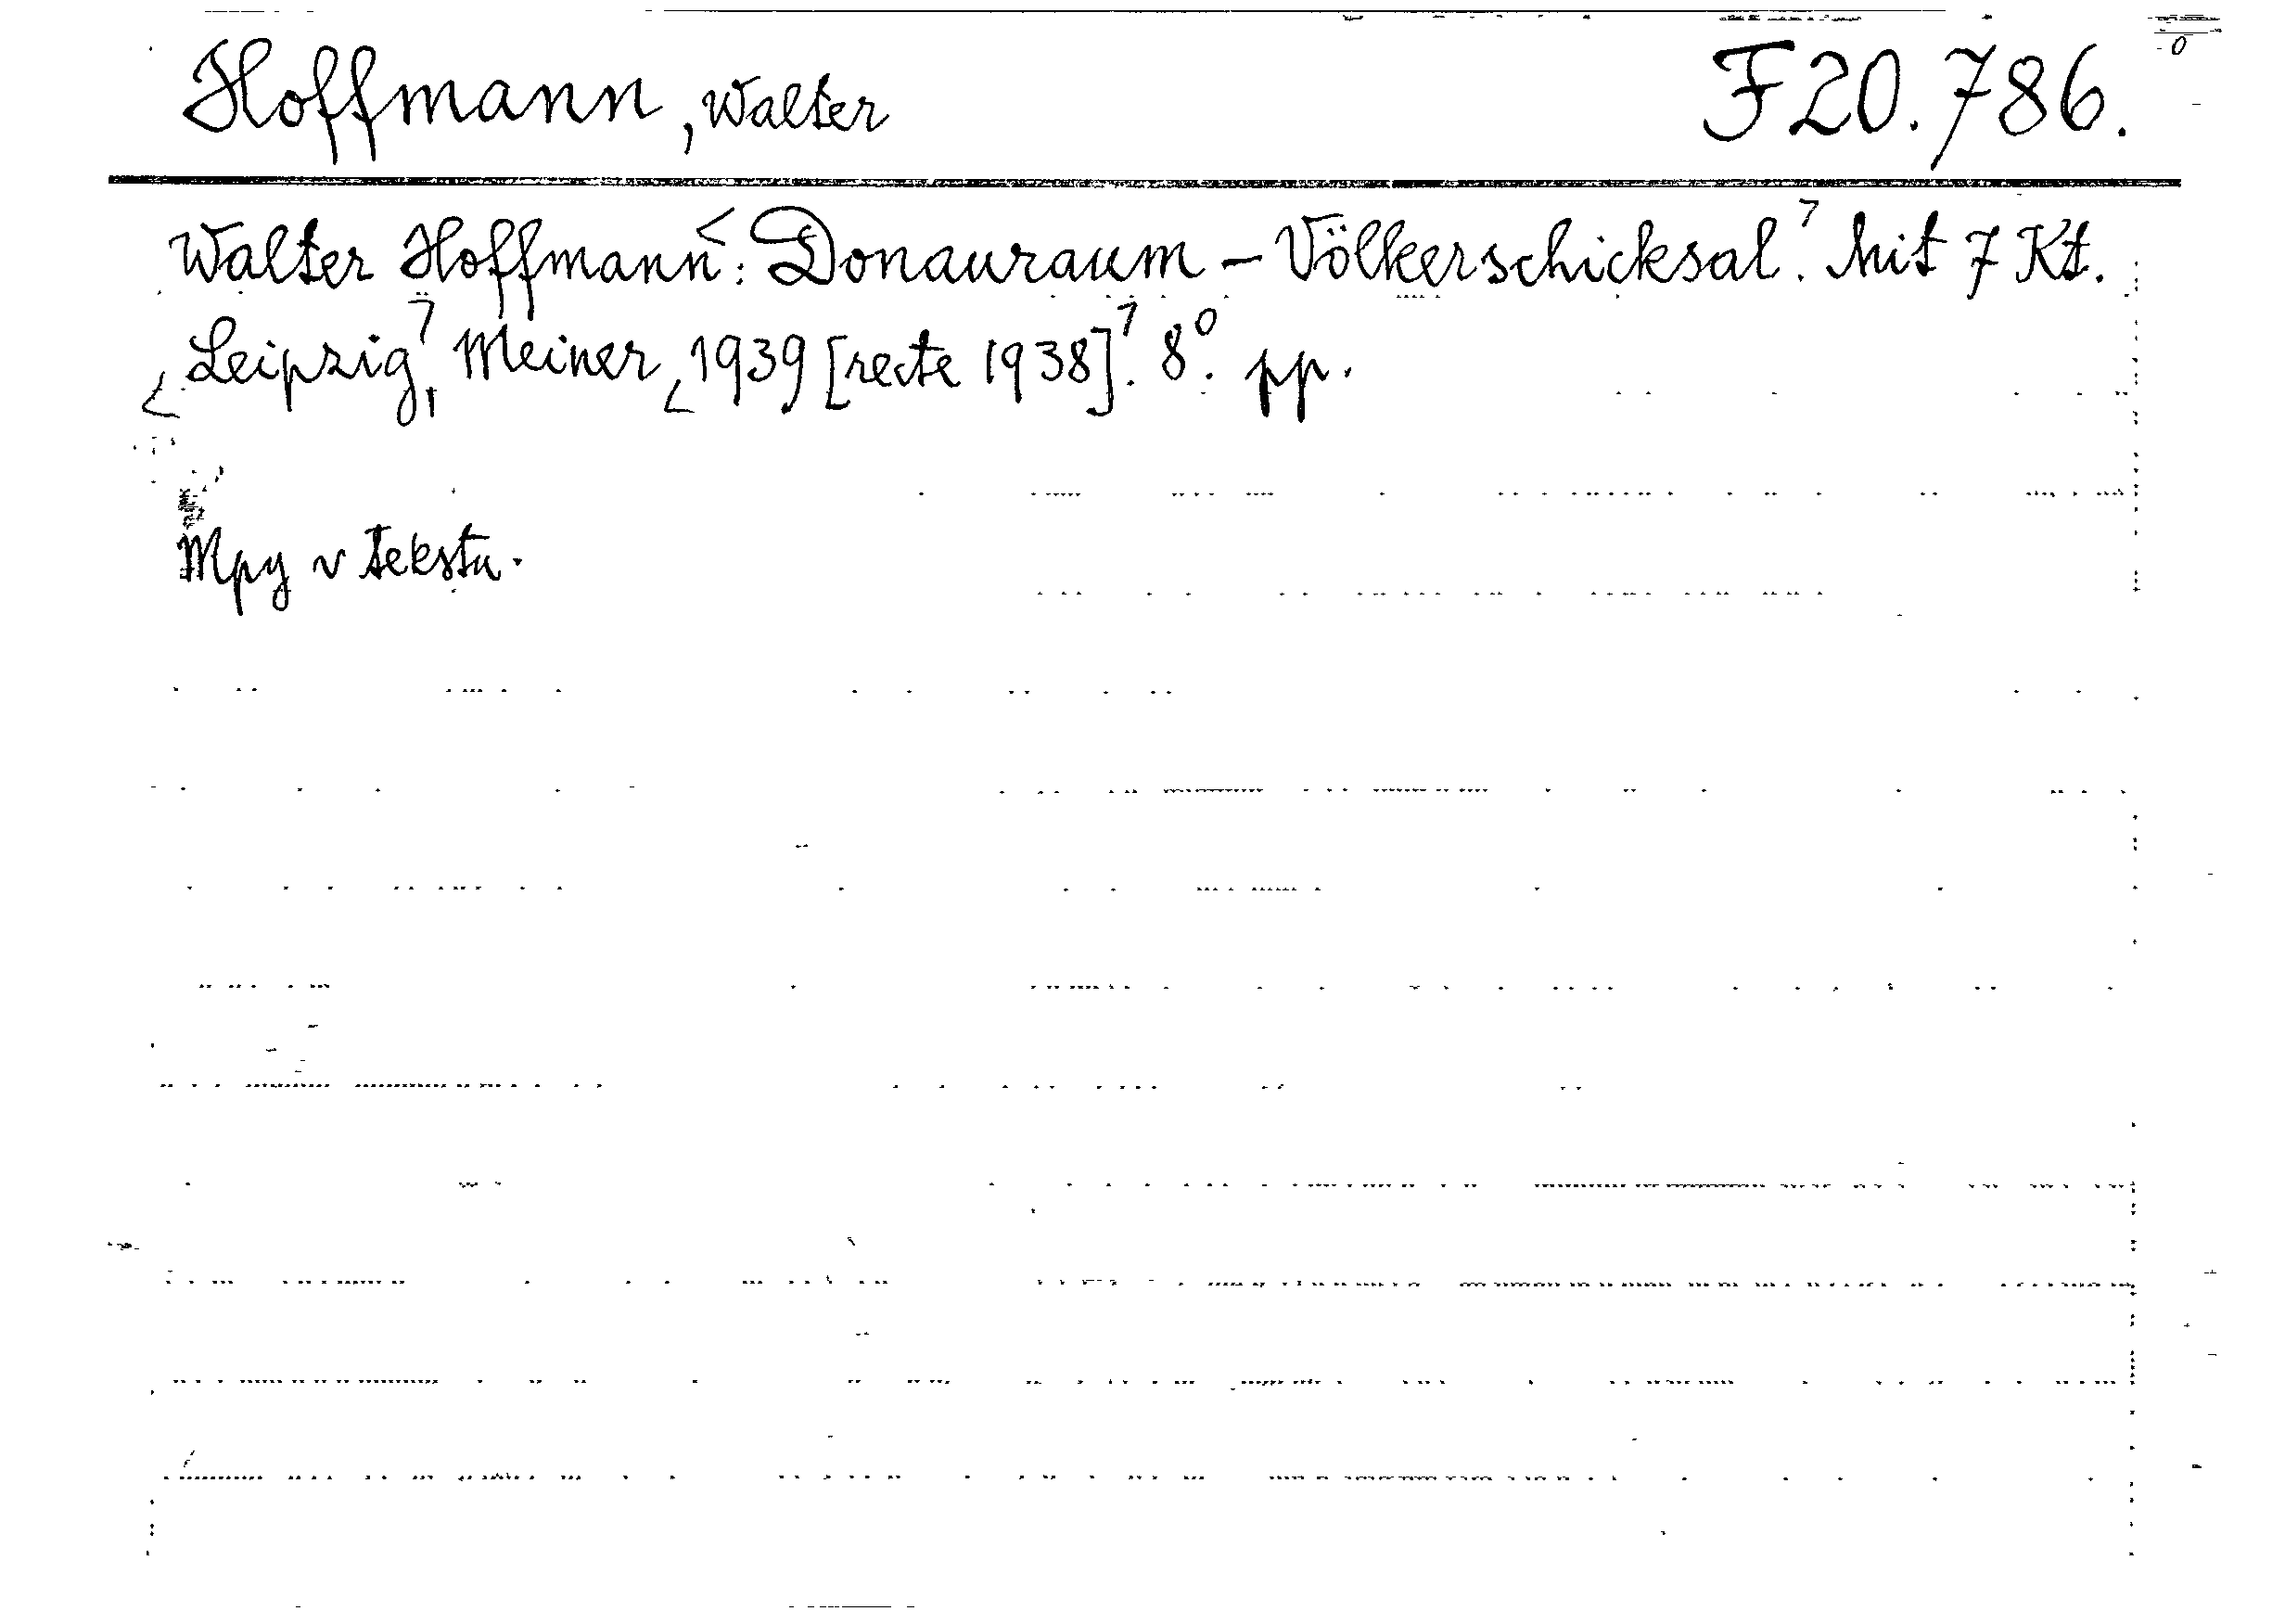 Hoffmann, Walter F 20.786.
Walter Hoffmann: Donauraum - Völkerschicksal. Mit 7 Kt.
Leipzig, Meiner, 1939 [recte 1938]. 8°. pp.
Mpy v tekstu.